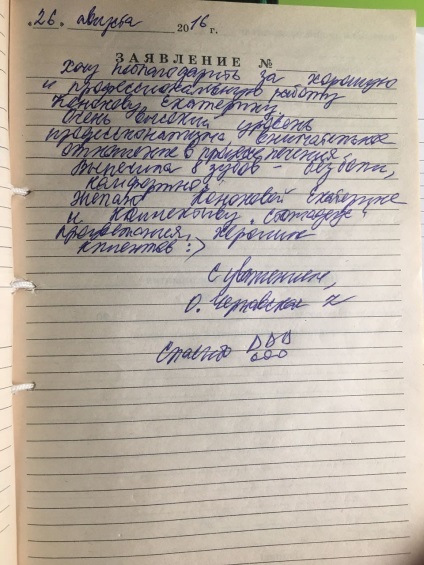 26. августа 2016 г.
ЗАЯВЛЕНИЕ №
Хочу поблагодарить за хорошую
и профессиональную работу
Конохову Екатерину.
Очень высокий уровень
профессионализма, внимательное
отношение в процессе лечения.
Вылечила 8 зубов - без боли,
комфортно.
Желаю Коноховой Екатерине
и коллективу
процветания, хороших
клиентов :)
С уважением,
О.
Спасибо